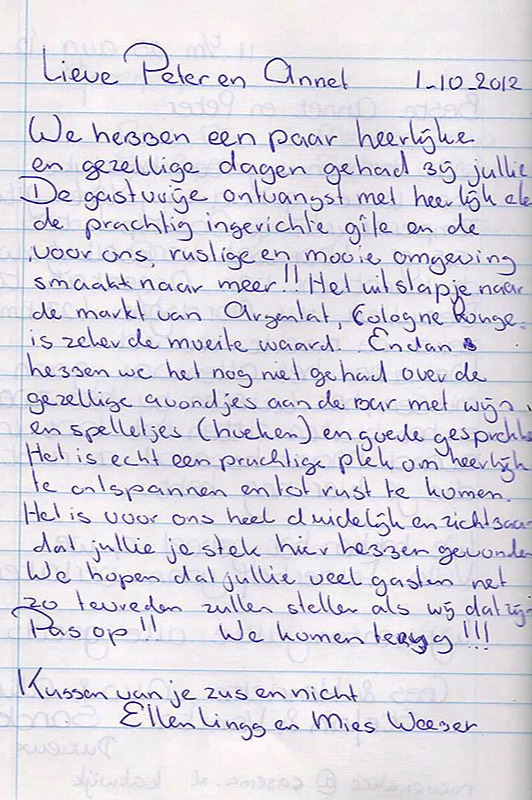 Lieve Peter en Annet 1-10-2012
We hebben een paar heerlijke
en gezellige dagen gehad bij jullie
De gastvrije ontvangst met heerlijk
de prachtig ingerichte gîte en de
voor ons, rustige en mooie omgeving
smaakt naar meer!! Het uitstapje naar
de markt van Argentat, Cologne Rouge
is zeker de moeite waard. En dan
hebben we het nog niet gehad over de
gezellige avondjes aan de bar met wijn
en spelletjes (boeken) en goede
Het is echt een prachtige plek om heerlijk
te ontspannen en tot rust te komen.
Het is voor ons heel duidelijk en zichtbaar
dat jullie je stek hier hebben gevonden
We hopen dat jullie veel gasten net
zo tevreden zullen stellen als wij dat zijn
Pas op!! We komen terug!!!
Kussen van je zus en nicht
Ellen Lings en Mies Weeber